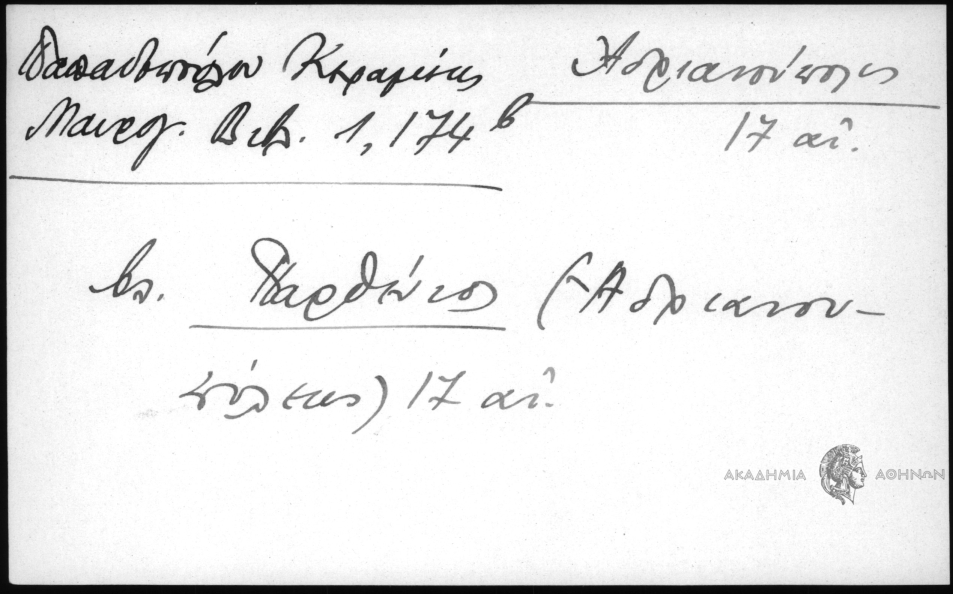 Παπαδοπούλου Κεραμέως
Μαυρογ. Βιβλ. 1, 174β
Ἀδριανούπολις
17 αἰ.
βλ. Παρθένιος (Ἀδριανου-
πόλεως) 17 αἰ.
ΑΚΑΔΗΜΙΑ ΑΘΗΝΩΝ